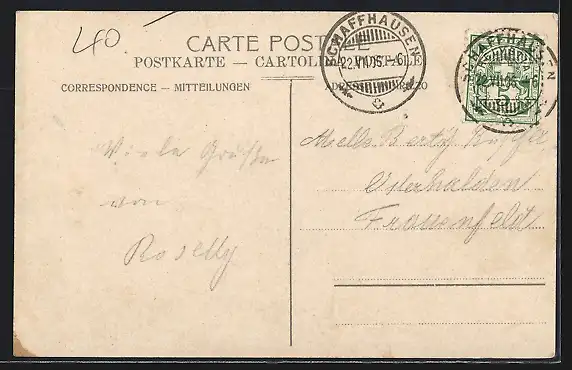 40
CARTE POSTALE
POSTKARTE — CARTOLINA POSTALE
CORRESPONDENCE — MITTEILUNGEN
SCHAFFHAUSEN
22.VII.05.
SCHAFFHAUSEN
22.VII.05.
5
Viele Grüsse
von
Roselly
Melle Berth
Osterhalden
Frauenfeld